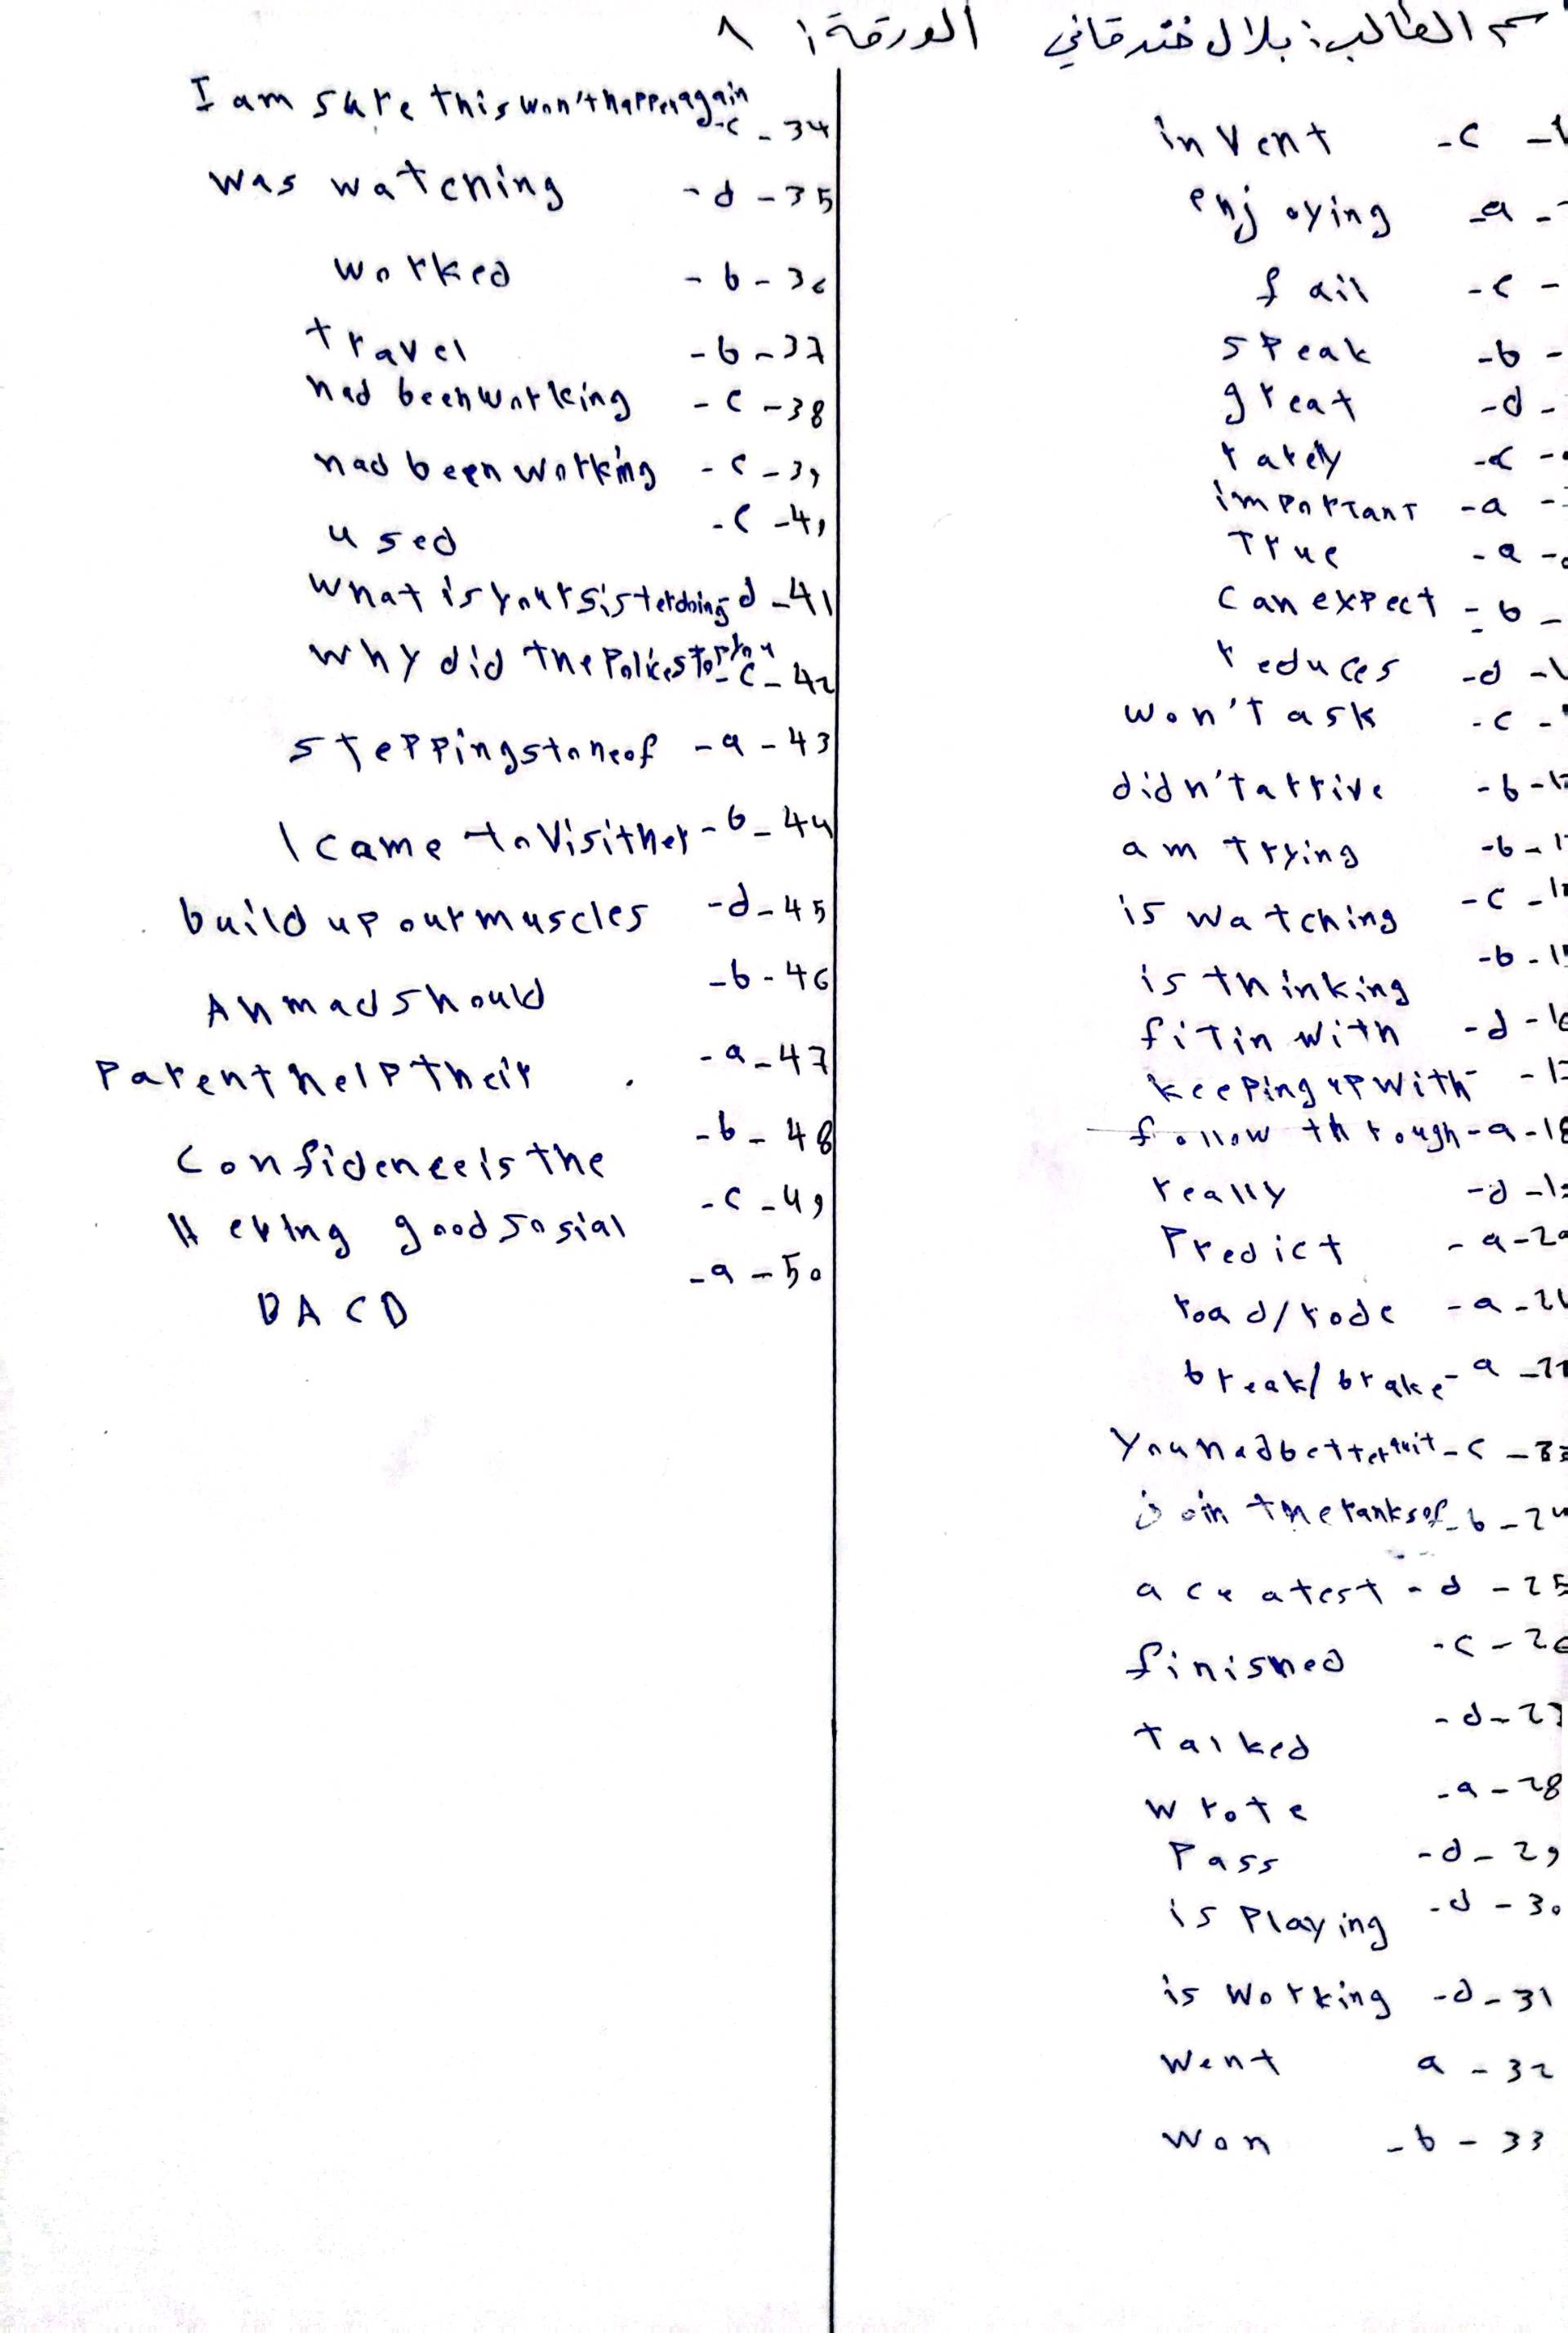 سم الطالب: بلال خندقاني الورقة: ٨
invent -c -1
enjoying -a -
fail -c -
speak -b -
great -d -
rarely -c -
important -a -
True -a -
can expect -b -
reduces -d -1
won't ask -c -
didn't arrive -b -12
am trying -b -1
is watching -c -1
is thinking -b -1
fit in with -d -16
keeping up with - -1
follow through -a -18
really -d -1
Predict -a -20
road/rode -a -2
break/brake -a -2
You had better quit -c -23
join the ranks of -b -24
acreatest -d -25
finished -c -26
talked -d -27
wrote -a -28
Pass -d -29
is Playing -d -30
is working -d -31
went a -32
won -b -33
I am sure this won't happen again -c -34
was watching -d -35
worked -b -36
travel -b -37
had been working -c -38
had been working -c -39
used -c -40
what is your sister doing -d -41
why did the Polices top you -c -42
stepping stone of -a -43
I came to visit her -b -44
build up our muscles -d -45
Ahmad should -b -46
Parent help their -a -47
Confidence is the -b -48
Heving good sosial -c -49
-a -50
DACD